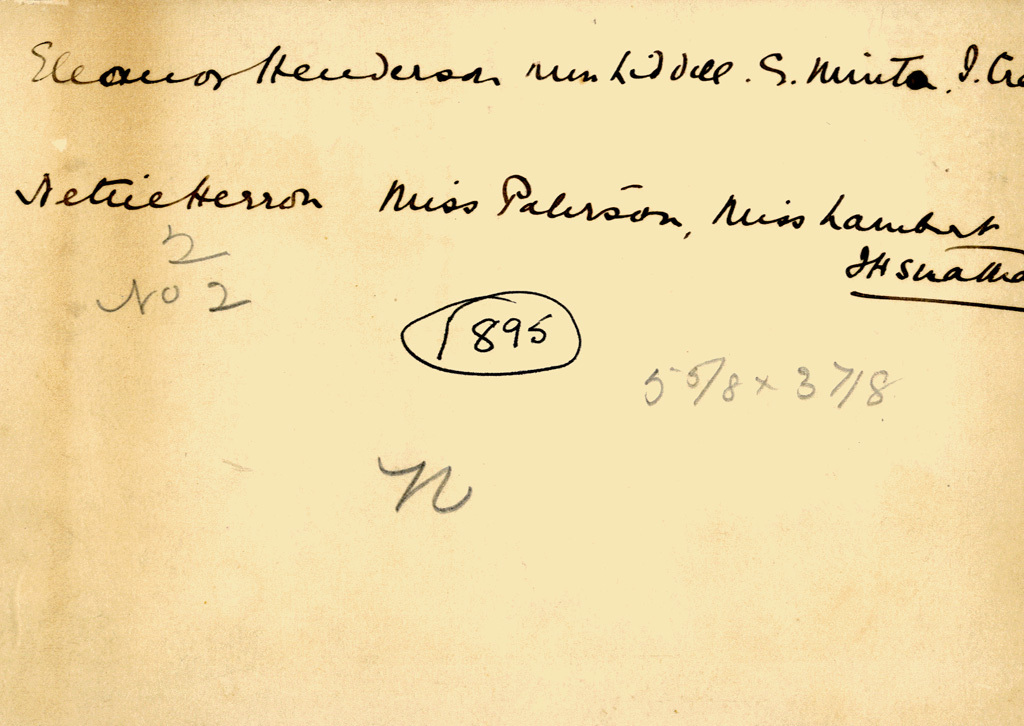 Eleanor Henderson Miss Liddell. G. Minta. J. Cra
Nettie Herron Miss Paterson, Miss Lambert
JH
2
No 2
1895
5 5/8 x 3 7/8
n